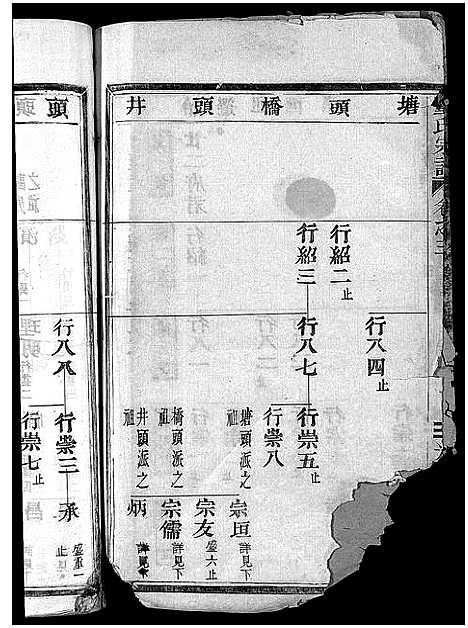 塘頭橋頭井
氏宗譜
卷之三
行八四止
行紹二止
行紹三 行八七 行崇五止
行崇八
塘頭派之祖 宗垣 詳見下
宗友 盛六止
橋頭派之祖 宗儒 詳見下
井頭派之祖 炳 詳見下
頭
行八八 行崇三 承 盛重一止
行崇七止